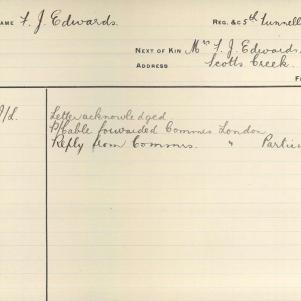 NAME F. J. Edwards. REG. &C 5th Tunnell
NEXT OF KIN Mrs F. J. Edwards
ADDRESS Scotts Creek.
Letter acknowledged
P/Cable forwarded Commrs London
Reply from Commrs. " Partic